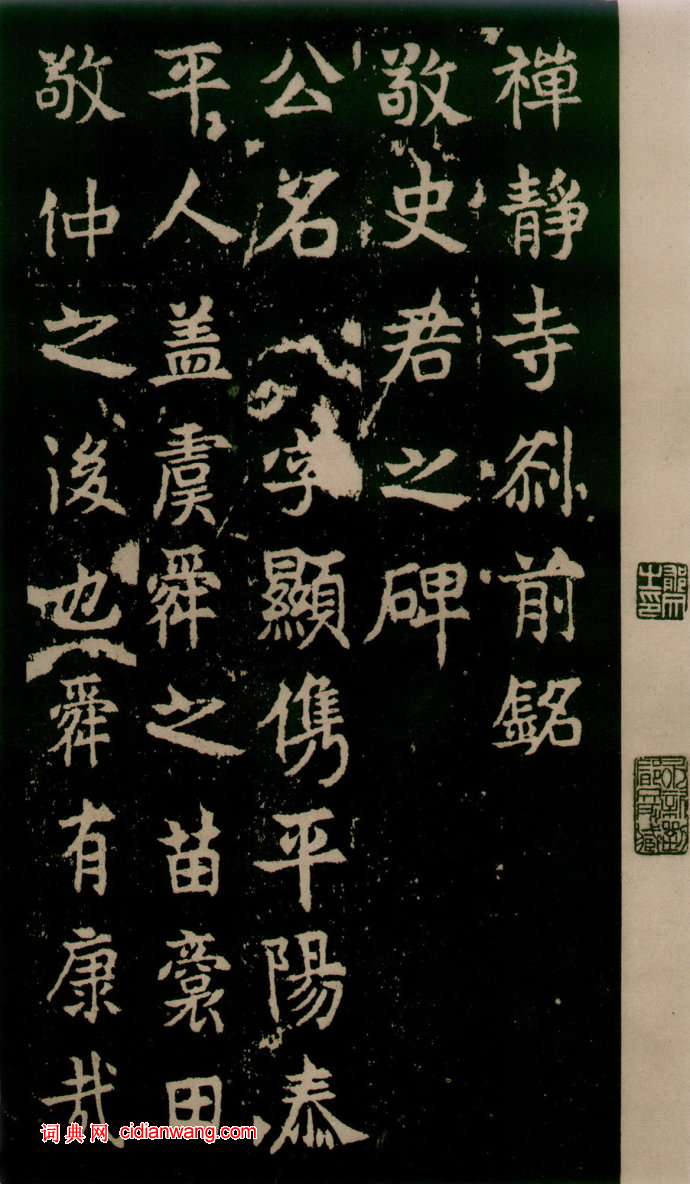 禅靜寺剎前銘
敬史君之碑
公名字顯儁平陽泰
平人盖虞舜之苗裔田
敬仲之後也舜有康哉
词典网 cidianwang.com